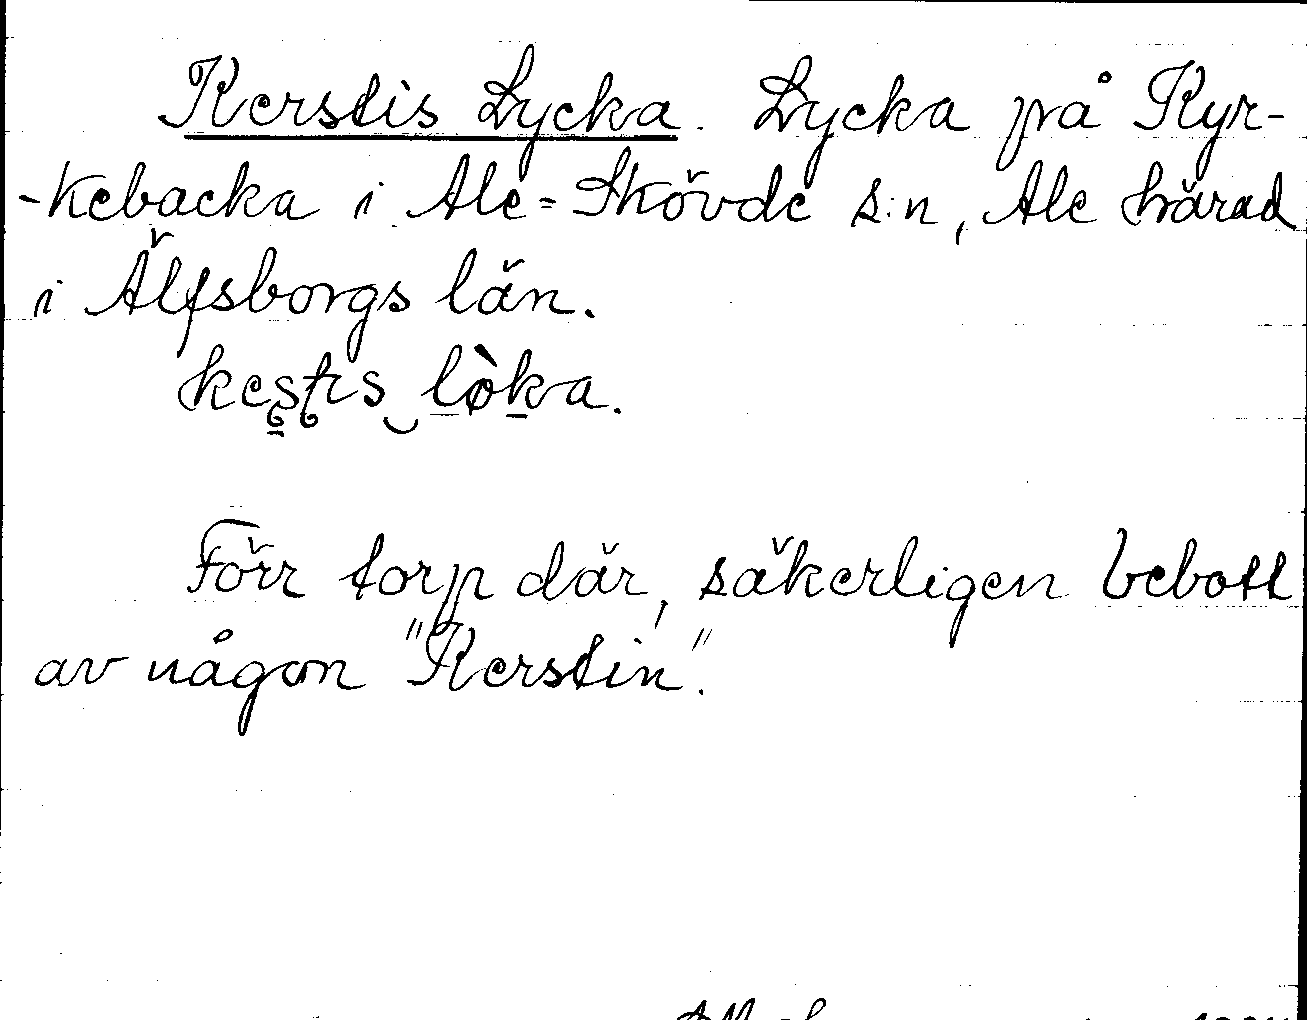 Kerstis Lycka. Lycka på Kyr-
-kebacka i Ale-Skövde s:n, Ale härad
i Älfsborgs län.
kestis løka.
Förr torp där, säkerligen bebott
av någon "Kerstin".